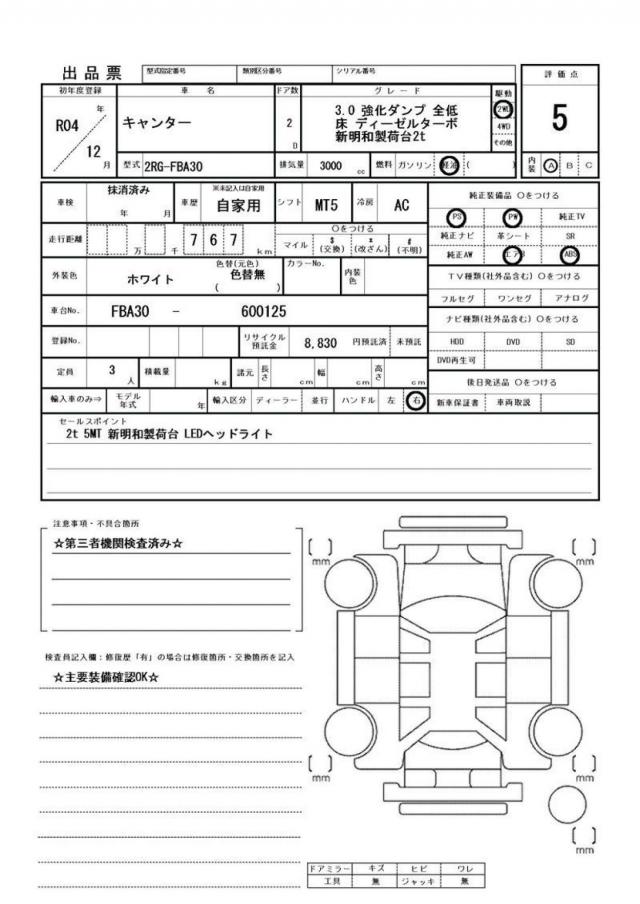 出品票 型式指定番号 類別区分番号 シリアル番号
初年度登録 車名 ドア数 グレード 駆動 評価点
R04 年 12 月
キャンター
2 D
3.0 強化ダンプ 全低
床 ディーゼルターボ
新明和製荷台2t
2WD
4WD
その他
5
型式 2RG-FBA30 排気量 3000 cc 燃料 ガソリン 軽油 ( ) 内装 A B C
車検 抹消済み 年 月 車歴 ※未記入は自家用 自家用 シフト MT5 冷房 AC
走行距離 万 千 7 6 7 km
○をつける
マイル $(交換) *(改ざん) #(不明)
外装色 ホワイト 色替(元色) 色替無 ( ) カラーNo. 内装色
車台No. FBA30 - 600125
登録No. リサイクル預託金 8,830 円預託済 未預託
定員 3 人 積載量 kg 諸元 長さ cm 幅 cm 高さ cm
輸入車のみ⇒ モデル年式 年 輸入区分 ディーラー 並行 ハンドル 左 右
純正装備品 ○をつける
PS PW 純正TV
純正ナビ 革シート SR
純正AW エアB ABS
TV種類(社外品含む) ○をつける
フルセグ ワンセグ アナログ
ナビ種類(社外品含む) ○をつける
HDD DVD SD
DVD再生可
後日発送品 ○をつける
新車保証書 車両取説
セールスポイント
2t 5MT 新明和製荷台 LEDヘッドライト
注意事項・不具合箇所
☆第三者機関検査済み☆
検査員記入欄：修復歴「有」の場合は修復箇所・交換箇所を記入
☆主要装備確認OK☆
[ ] mm
[ ] mm
[ ] mm
[ ] mm
[ ] mm
ドアミラー キズ ヒビ ワレ
工具 無 ジャッキ 無